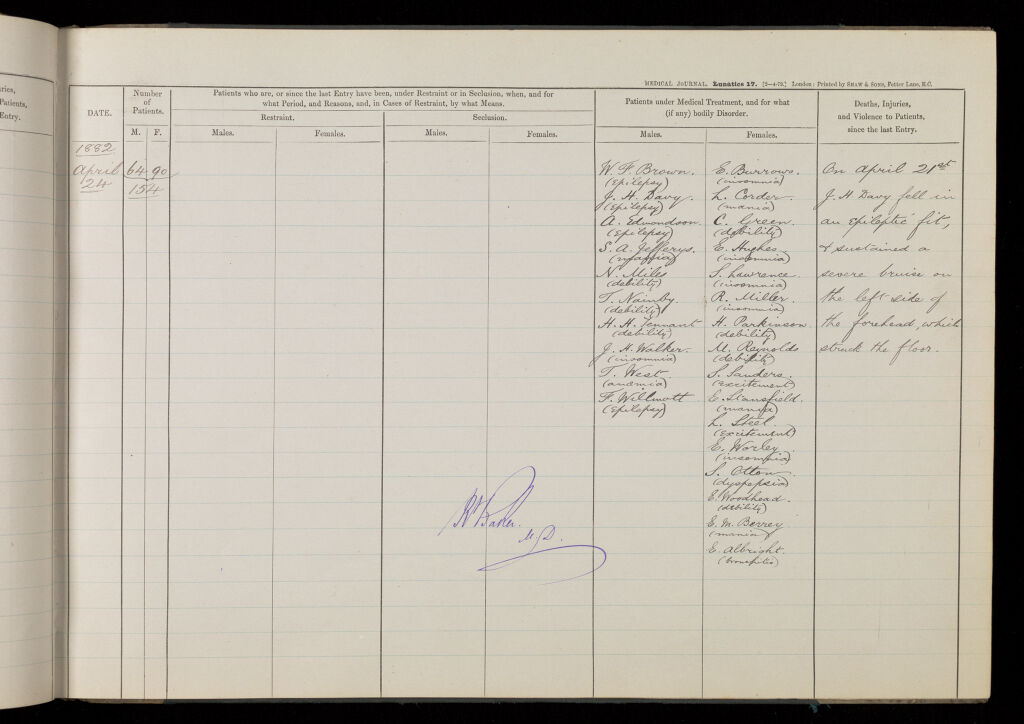 ries,
Patients,
Entry.
MEDICAL JOURNAL. Lunatics 17. [2—4-79.] London: Printed by SHAW & SONS, Fetter Lane, E.C.
DATE.
Number
of
Patients.
M. F.
Patients who are, or since the last Entry have been, under Restraint or in Seclusion, when, and for
what Period, and Reasons, and, in Cases of Restraint, by what Means.
Restraint. Seclusion.
Males. Females. Males. Females.
Patients under Medical Treatment, and for what
(if any) bodily Disorder.
Males. Females.
Deaths, Injuries,
and Violence to Patients,
since the last Entry.
1882
April 64 90
24 154
W. F. Brown.
(Epilepsy)
J. H. Davy.
(Epilepsy)
A. Edmondson.
(Epilepsy)
S. A. Jefferys.
N. Miles
(debility)
T. Nainby.
(debility)
H. H. Tennant
(debility)
J. H. Walker.
(insomnia)
T. West.
(anæmia)
F. Willmott
(Epilepsy)
E. Burrows.
(insomnia)
L. Corder.
(mania)
C. Green.
(debility)
E. Hughes.
(insomnia)
S. Lawrence.
(insomnia)
R. Miller.
(insomnia)
H. Parkinson.
(debility)
M. Reynolds
(debility)
S. Sanders.
(excitement)
E. Stansfield.
(mania)
L. Steel.
(excitement)
E. Worley.
(insomnia)
S. Otton.
(dyspepsia)
E. Woodhead.
(debility)
E. M. Berrey
(mania)
E. Albright.
(bronchitis)
On April 21st
J. H Davy fell in
an epileptic fit,
& sustained a
severe bruise on
the left side of
the forehead, which
struck the floor.
Rt Baker.
M.D.